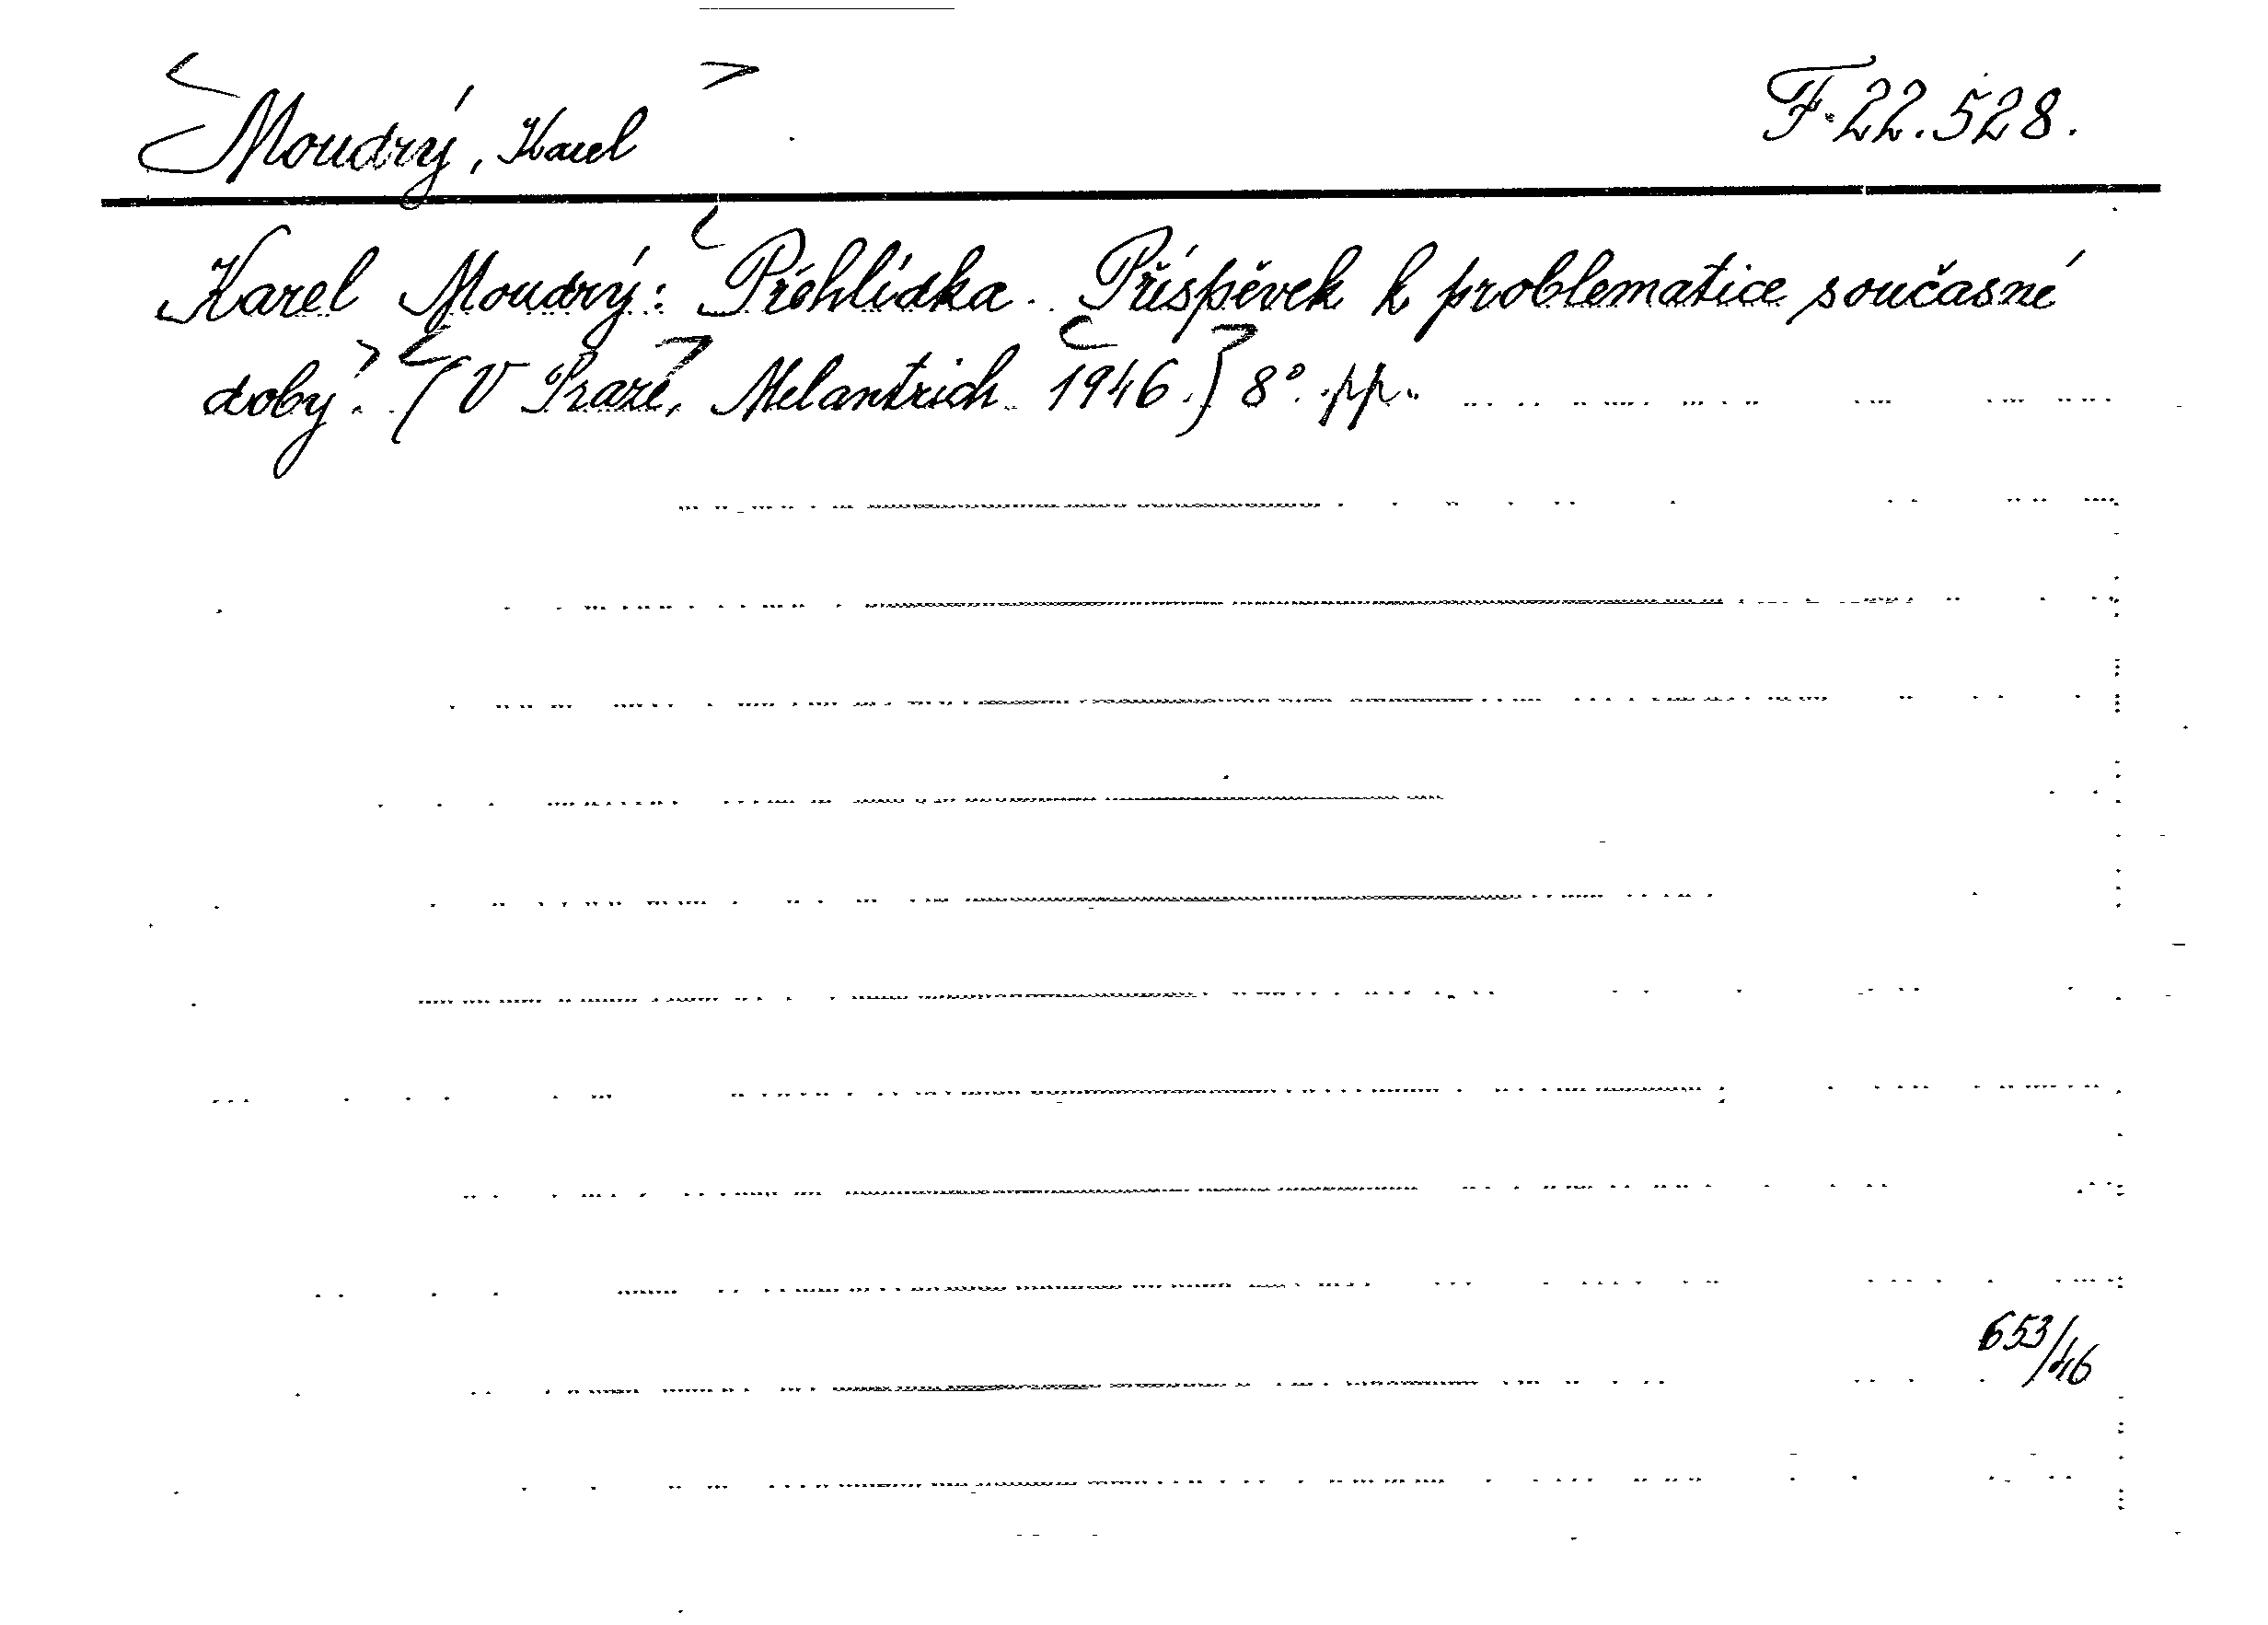 Moudrý, Karel
F 22.528.
Karel Moudrý: Přehlídka. Příspěvek k problematice současné
doby. (V Praze, Melantrich 1946.) 8°. pp.
653/46